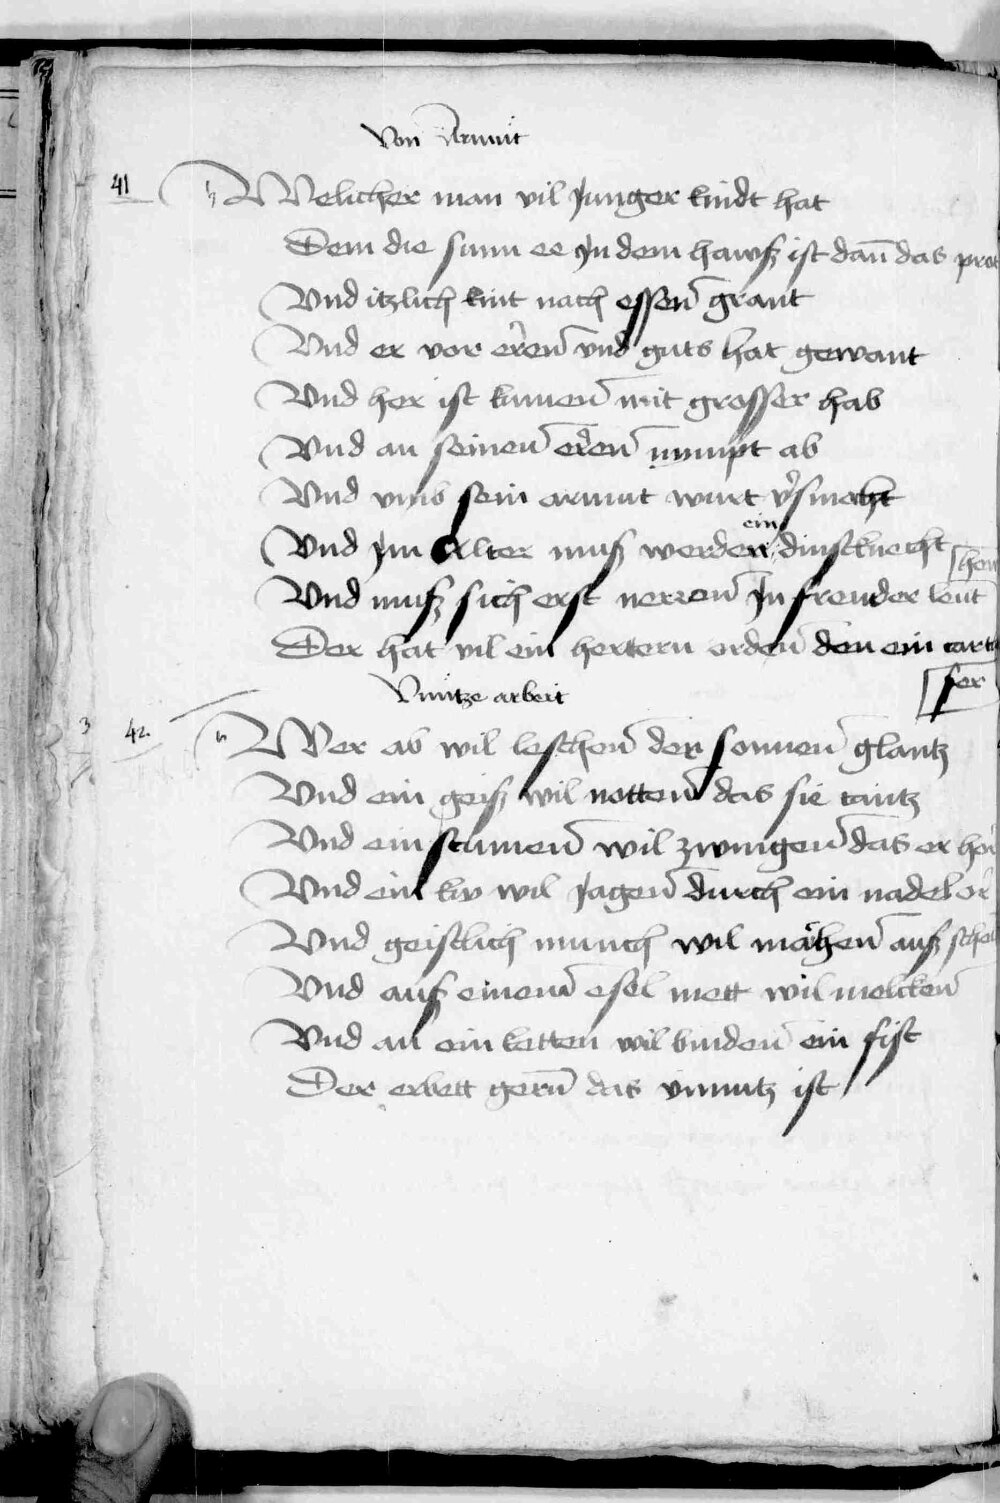 Von Armut
41 Welicher man vil Junger kindt hat
Dem die sunn ee Jn dem hawß ist dan̄ das prot
Vnd itzlich kint nach essen̄ grant
Vnd er vor eren̄ vnd guts hat gewant
Vnd her ist kumen̄ mit grosser hab
Vnd an seinen̄ eren̄ nympt ab
Vnd vmb sein armut wurt v̉smecht
ein
Vnd Jm Alter muß werden dinstknecht
Vnd muß sich erst nerren̄ Jn fremder leut
hen̄
Der hat vil ein hertern orden̄ den ein cart
ser
Vnnütze arbeit
3 42. Wer ab wil leschen̄ den sonnen̄ glantz
Vnd ein geiß wil notten̄ das sie tantz
Vnd ein stumen̄ wil zwingen̄ das er hor
Vnd ein kw wil Jagen̄ durch ein nadel or
Vnd geistlich munch wil mähen̄ auß
Vnd auß einem esel mett wil melcken̄
Vnd an ein ketten wil binden̄ ein fist
Der erbett gern̄ das vnnutz ist